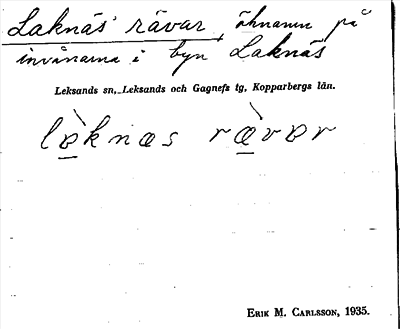 Laknäs rävar, öknamn på
invånarna i byn Laknäs
Leksands sn, Leksands och Gagnefs tg, Kopparbergs län.
lɐ̲̀knæs ræ̲̀vɐr
ERIK M. CARLSSON, 1935.